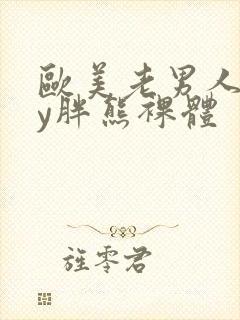 歐美老男人
y胖熊裸體
旌零君